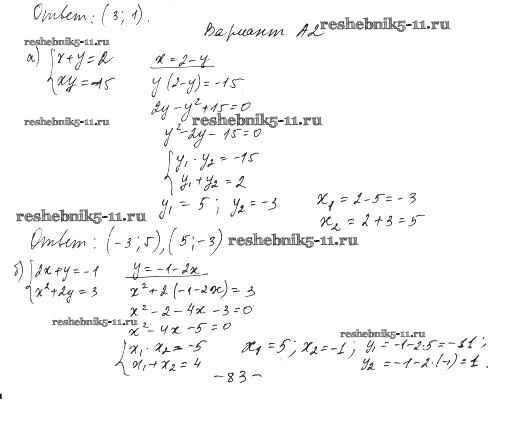 Ответ: (3; 1).
Вариант А2
reshebnik5-11.ru
reshebnik5-11.ru
а) { x + y = 2   x = 2 - y
xy = -15   y(2-y) = -15
2y - y² + 15 = 0
reshebnik5-11.ru
reshebnik5-11.ru
y² - 2y - 15 = 0
{ y₁ · y₂ = -15
y₁ + y₂ = 2
y₁ = 5; y₂ = -3   x₁ = 2 - 5 = -3
x₂ = 2 + 3 = 5
reshebnik5-11.ru
Ответ: (-3; 5), (5; -3)
reshebnik5-11.ru
б) { 2x + y = -1   y = -1 - 2x
x² + 2y = 3   x² + 2(-1-2x) = 3
x² - 2 - 4x - 3 = 0
reshebnik5-11.ru
x² - 4x - 5 = 0
reshebnik5-11.ru
{ x₁ · x₂ = -5   x₁ = 5; x₂ = -1; y₁ = -1-2·5 = -11;
x₁ + x₂ = 4   y₂ = -1-2·(-1) = 1.
- 83 -